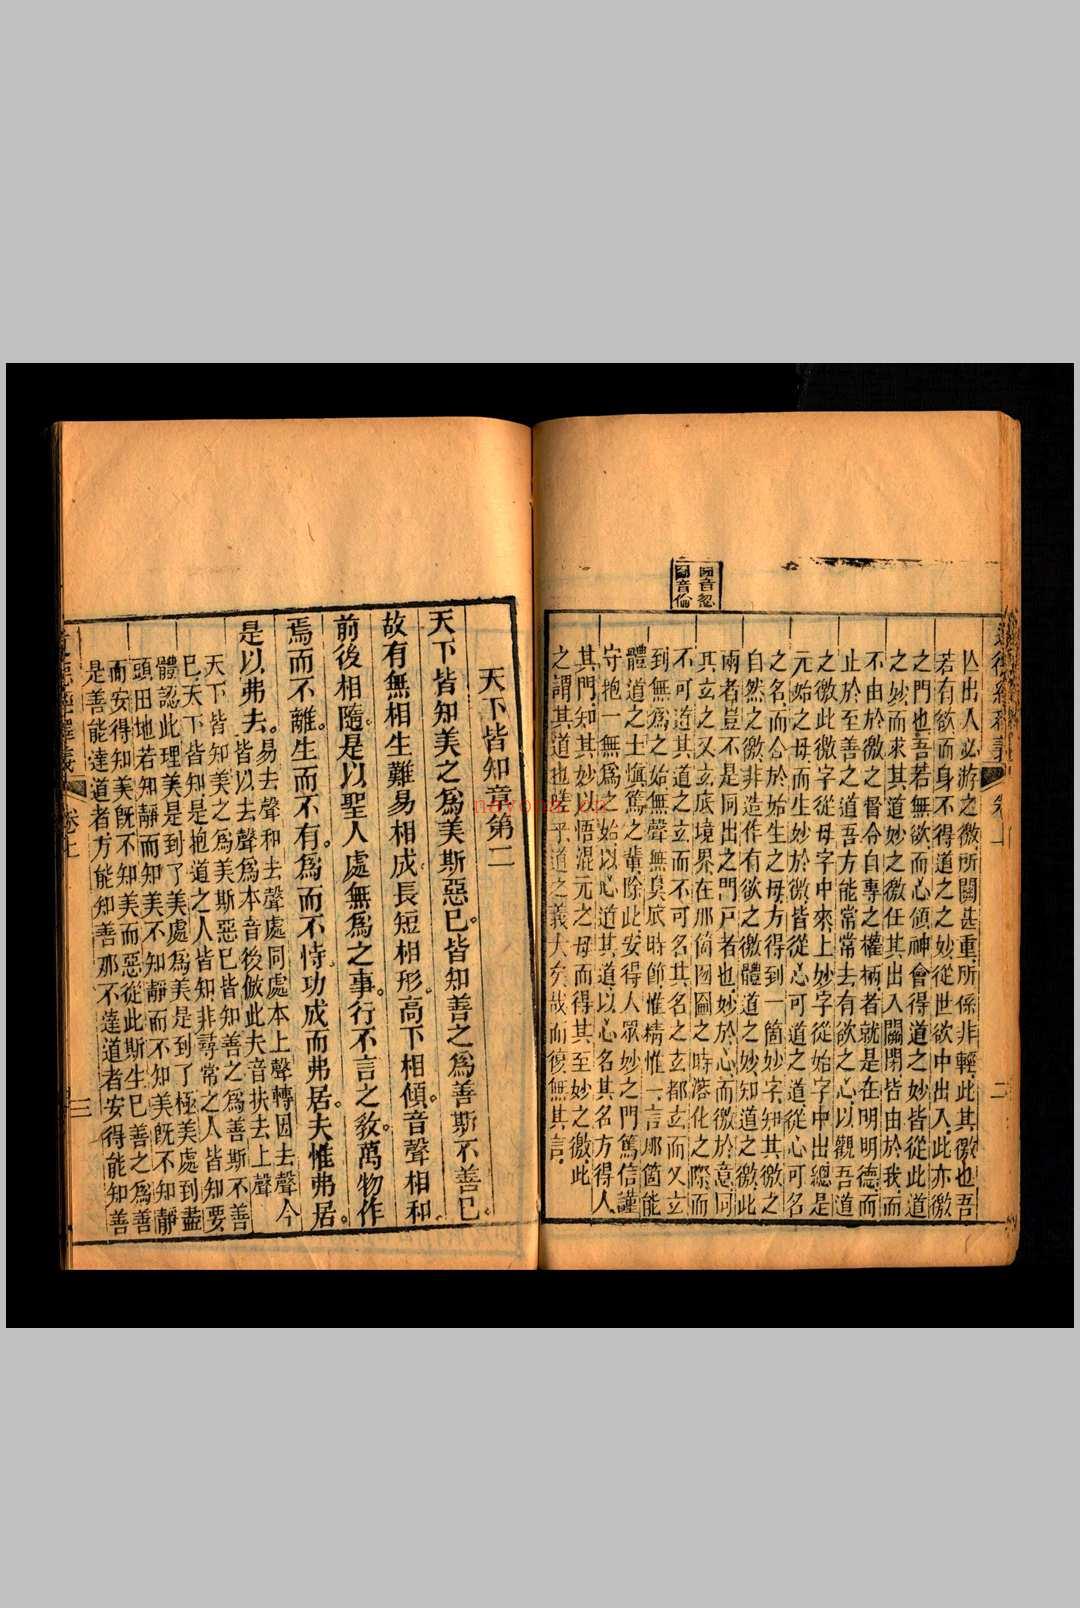 道德經釋義
卷上
二
㘞音忽
圇音倫
丛出入必游之徼所關甚重所係非輕此其徼也吾
若有欲而身不得道之之妙從世欲中出入此亦徼
之門也吾若無欲而心領神會得道之妙皆從此道
之妙而求其道妙之徼任其出入關閉皆由於我而
不由於徼之督令自專之權柄者就是在明明德而
止於至善之道吾方能常常去有欲之心以觀吾道
之徼此徼字從母字中來上妙字從始字中出總是
元始之母而生妙於徼皆從心可道之道從心可名
之名而合於始生之母方得到一箇妙字知其徼之
自然之徼非造作有欲之徼體道之妙知道之徼此
兩者豈不是同出之門戸者也妙於心而徼於意同
其立之又立底境界在那箇囫圇之時落化之際而
不可道其道之立而不可名其名之玄都立而又立
到無爲之始無聲無臭底時節惟精惟一言那箇能
體道之士慎篤之輩除此安得人眾妙之門篤信謹
守抱一無爲之始以心道其道以心名其名方得人
其門知其妙以悟混元之母而得其至妙之徼此
之謂其道也嗟乎道之義大矣哉而復無其言
天下皆知章第二
天下皆知美之爲美斯惡已皆知善之爲善斯不善已
故有無相生難易相成長短相形高下相傾音聲相和
前後相隨是以聖人處無爲之事行不言之教萬物作
焉而不離生而不有爲而不恃功成而弗居夫惟弗居
是以弗去易去聲和去聲處同處本上聲轉因去聲今
皆以去聲爲本音後倣此夫音扶去上聲
天下皆知美之爲美斯惡已皆知善之爲善斯不善
已天下皆知是抱道之人皆知非尋常之人皆知要
體認此理美是到了美處爲美是到了極美處到盡
頭田地若知靜而知美不知靜而不知美旣不知靜
而安得知美旣不知美而惡從此斯生巳善之爲善
是善能達道者方能知善那不達道者安得能知善
道德經釋義
卷上
三
nayona.cn